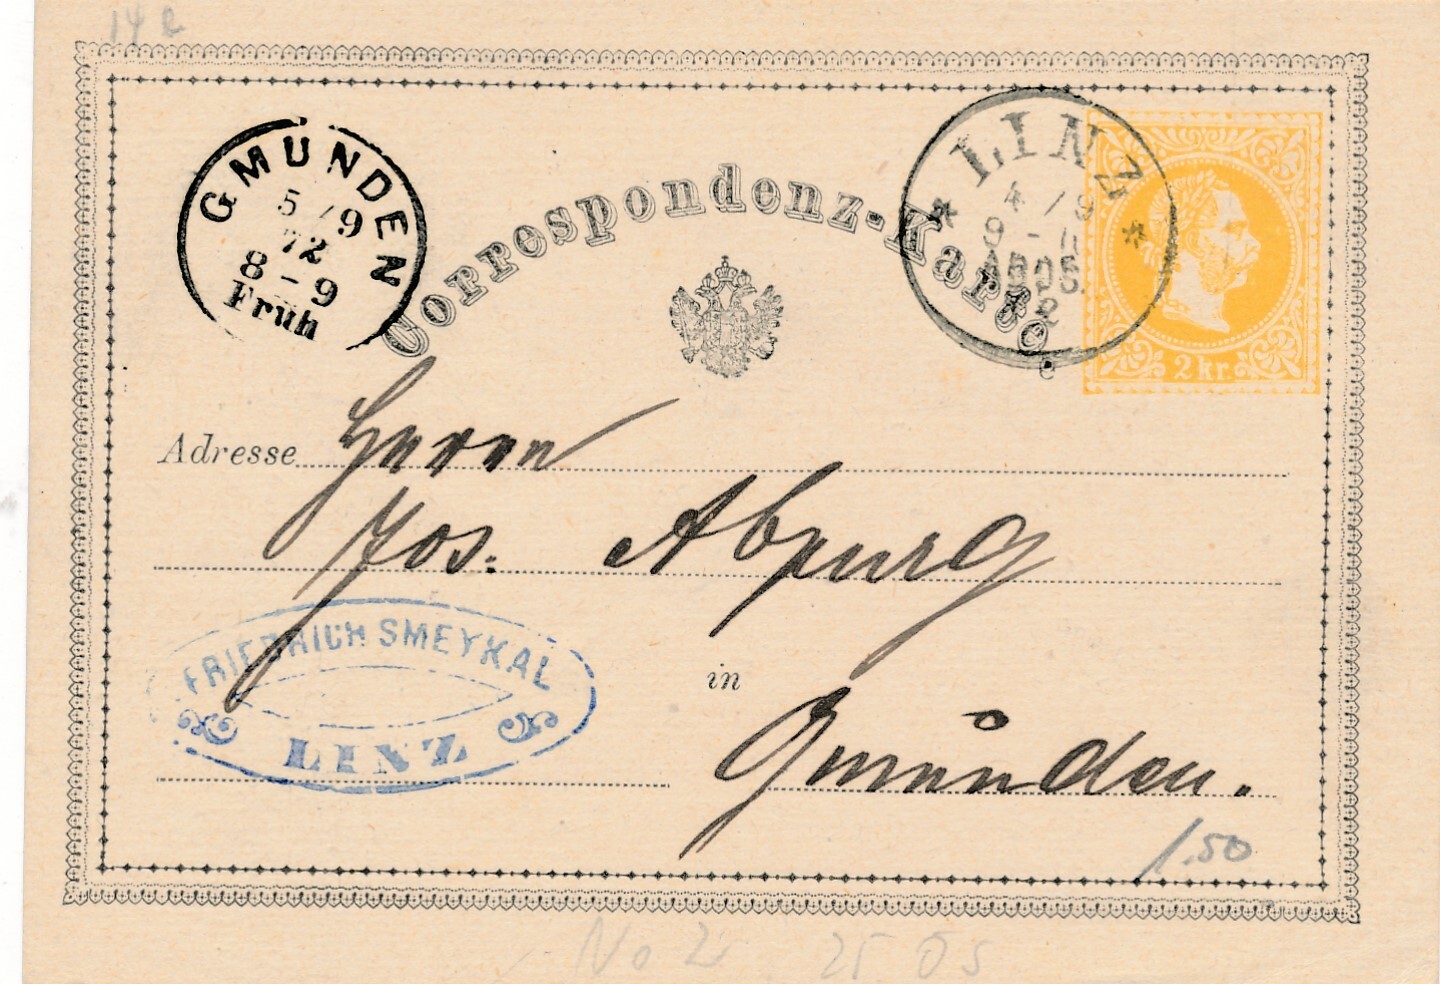 14 e
GMUNDEN
5/9
72
8-9
Früh
Correspondenz-Karte
LINZ
4/9
9-11
ABDS.
2 kr.
Adresse Herrn
Jos. Abpurg
FRIEDRICH SMEYKAL
LINZ
in
Gmunden.
1.50
No 2 25 ÖS